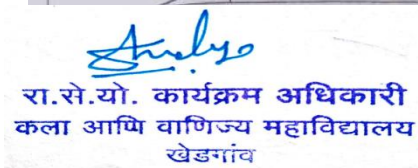 रा.से.यो. कार्यक्रम अधिकारी
कला आणि वाणिज्य महाविद्यालय
खेडगांव